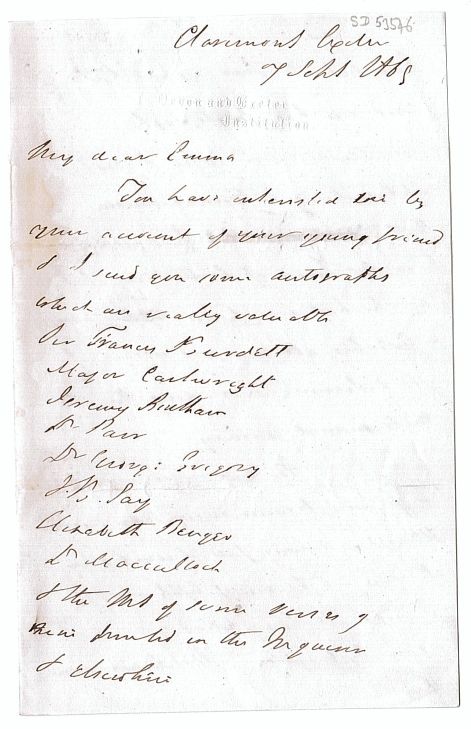 SD 53546
Claremont Exeter
7 Sept 1865
Devon and Exeter
Institution
My dear Emma
You have interested me by
your account of your young friend
& I send you some autographs
which are really valuable
Sir Francis Burdett
Major Cartwright
Jeremy Bentham
Dr Parr
Dr George Gregory
J. B. Say
Elizabeth Benger
Dr Macculloch
& the MS of some verses of
mine printed in the Inquirer
& elsewhere